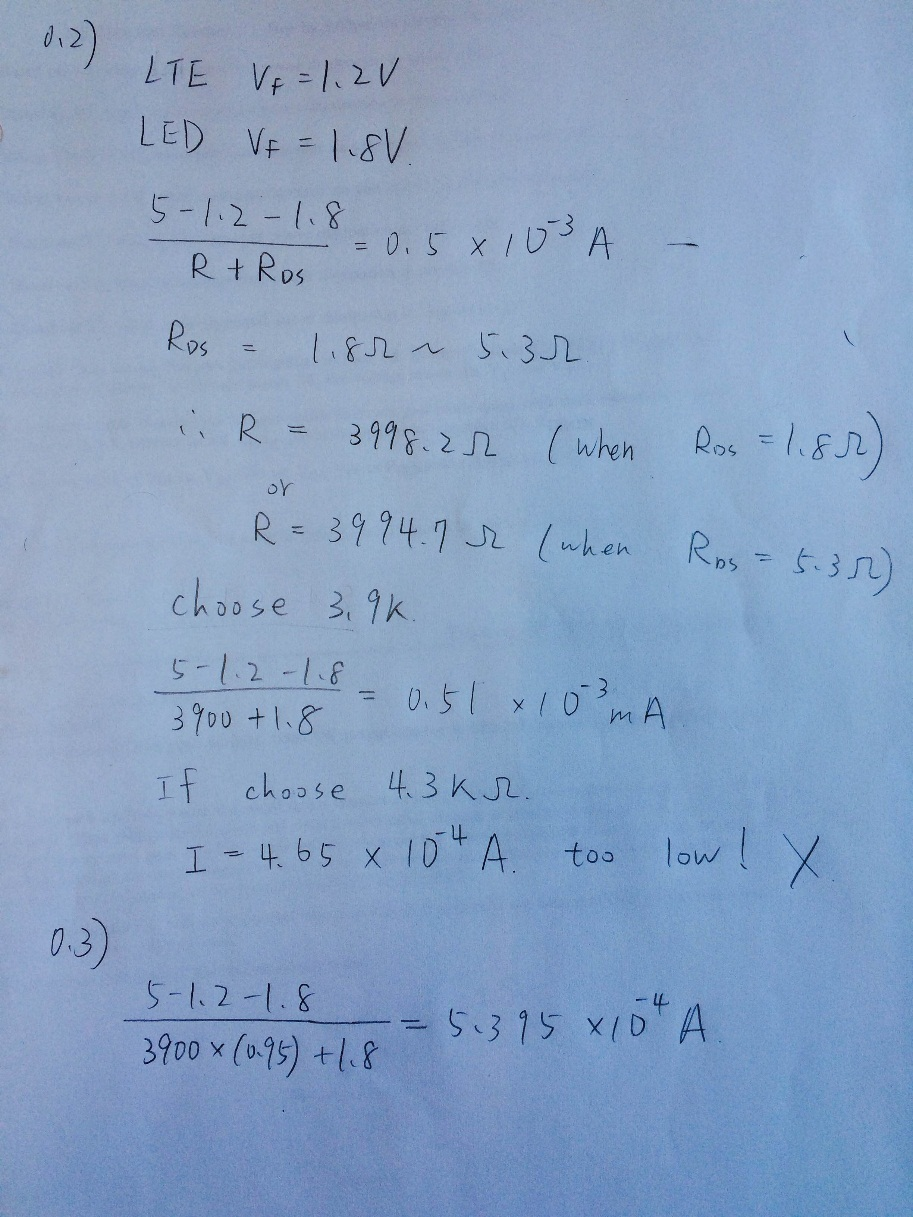 0.2)
LTE V_F = 1.2V
LED V_F = 1.8V.
5-1.2-1.8
R + R_DS = 0.5 × 10^-3 A —
R_DS = 1.8Ω ~ 5.3Ω
∴ R = 3998.2Ω (when R_DS = 1.8Ω)
or
R = 3994.7Ω (when R_DS = 5.3Ω)
choose 3.9k.
5-1.2-1.8
3900 + 1.8 = 0.51 × 10^-3 mA
If choose 4.3kΩ.
I = 4.65 × 10^-4 A. too low! X
0.3)
5-1.2-1.8
3900 × (0.95) + 1.8 = 5.395 × 10^-4 A.